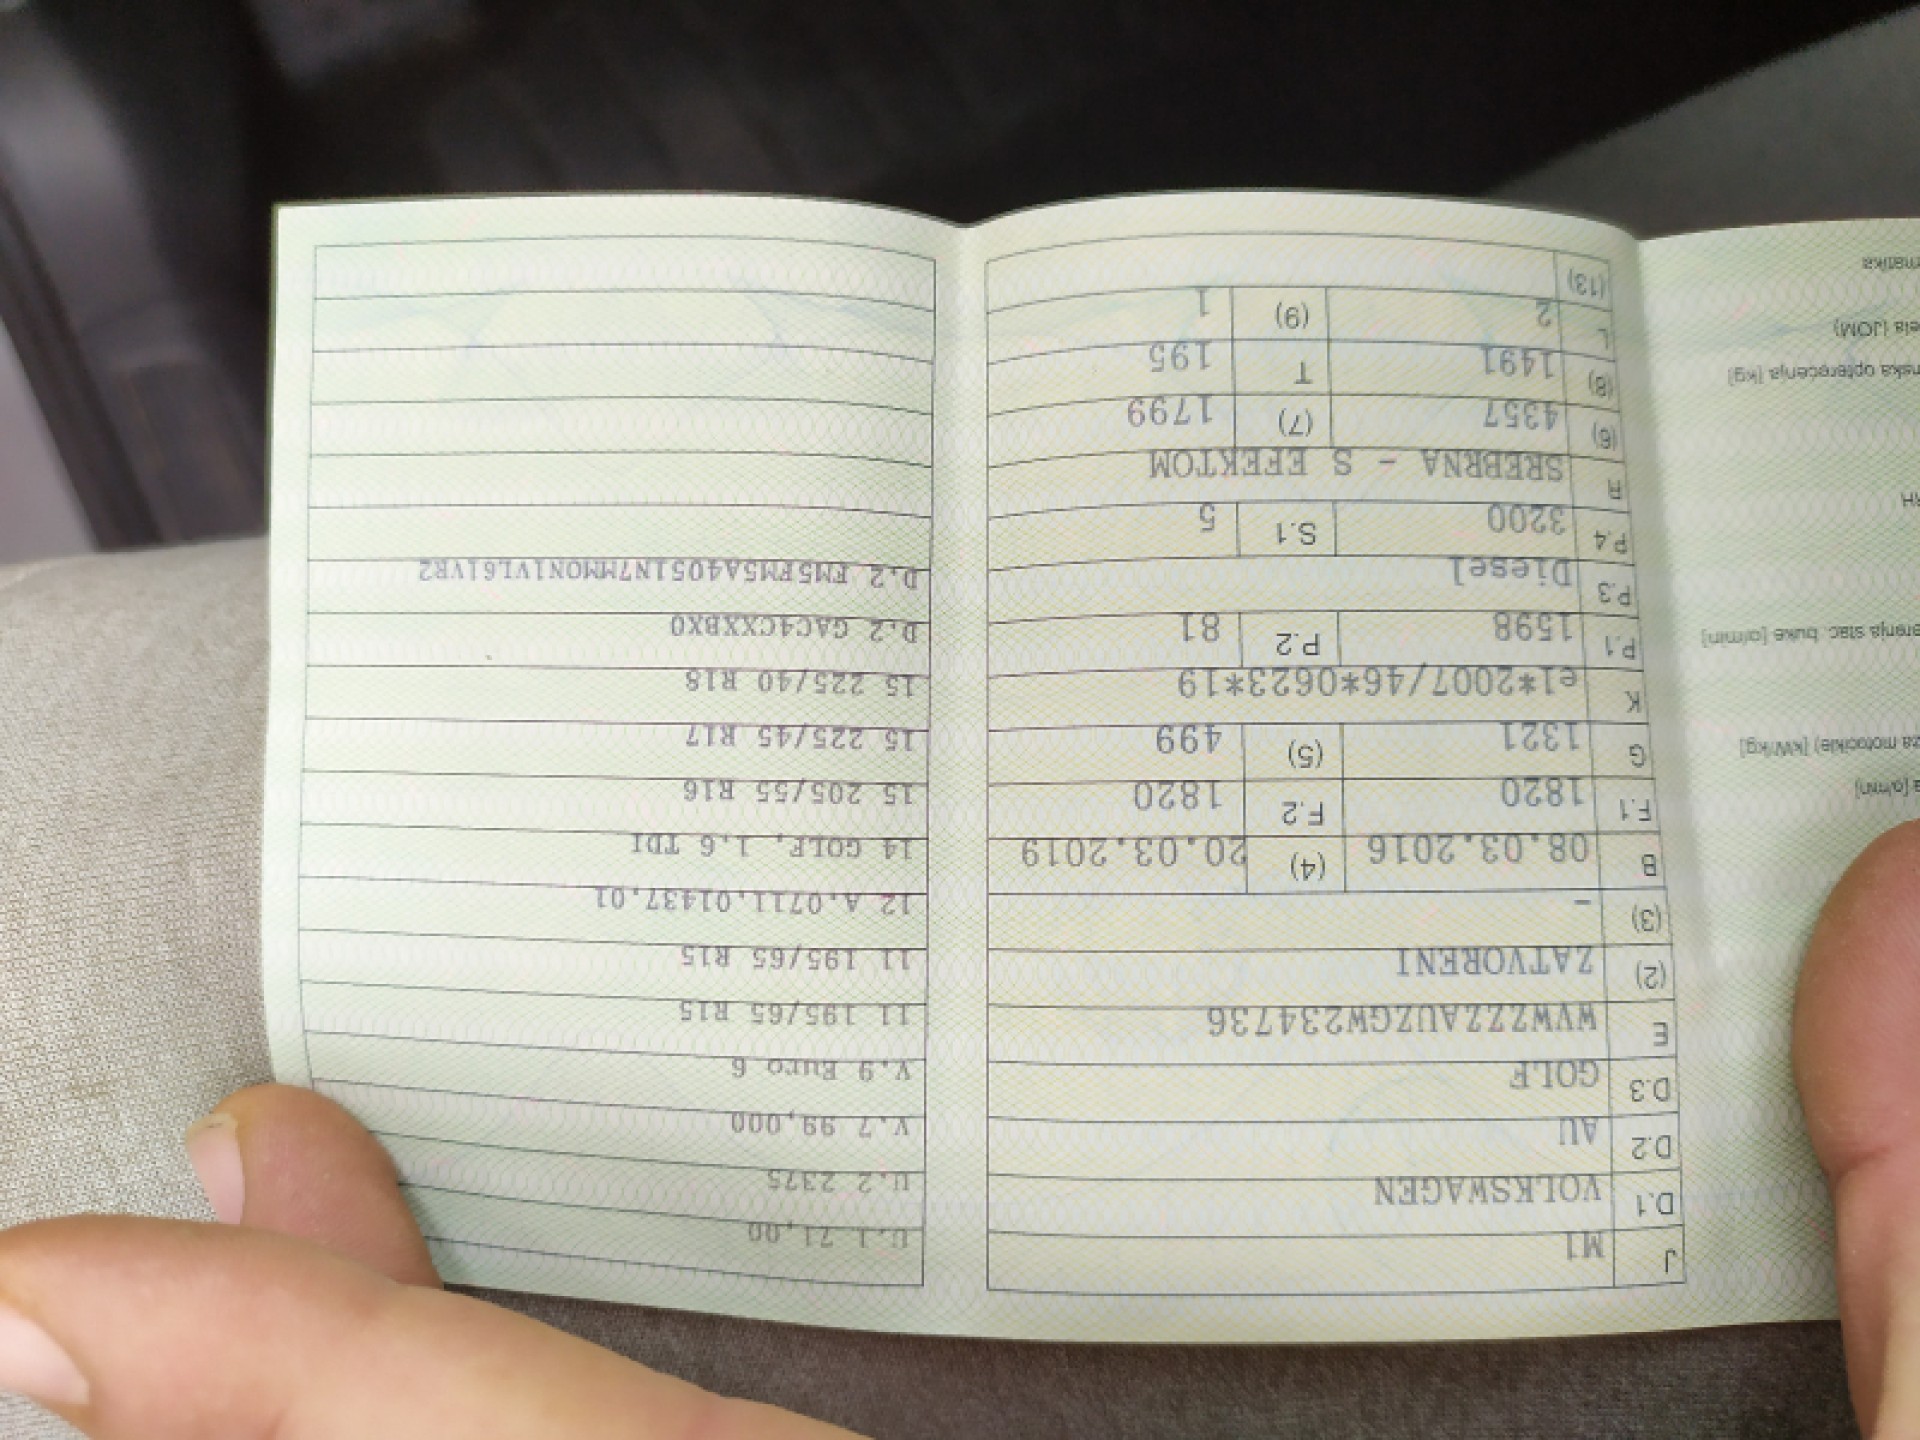 J M1
D.1 VOLKSWAGEN
D.2 AU
D.3 GOLF
E WVWZZZAUZGW234736
(2) ZATVORENI
(3) -
B 08.03.2016 (4) 20.03.2019
F.1 1820 F.2 1820
G 1321 (5) 499
K e1*2007/46*0623*19
P.1 1598 P.2 81
P.3 Diesel
P.4 3200 S.1 5
R SREBRNA - S EFEKTOM
(6) 4357 (7) 1799
(8) 1491 T 195
L 2 (9) 1
(13)
U.1 71,00
U.2 2375
V.7 99,000
V.9 Euro 6
11 195/65 R15
11 195/65 R15
12 A.0711.01437.01
14 GOLF, 1.6 TDI
15 205/55 R16
15 225/45 R17
15 225/40 R18
D.2 GAC4CXXBX0
D.2 FM5FM5A4051N7MMON1VL61VR2
[o/min]
za motocikle) [kW/kg]
erenja stac. buke [o/min]
RH
nska opterećenja [kg]
ela (JOM)
matika